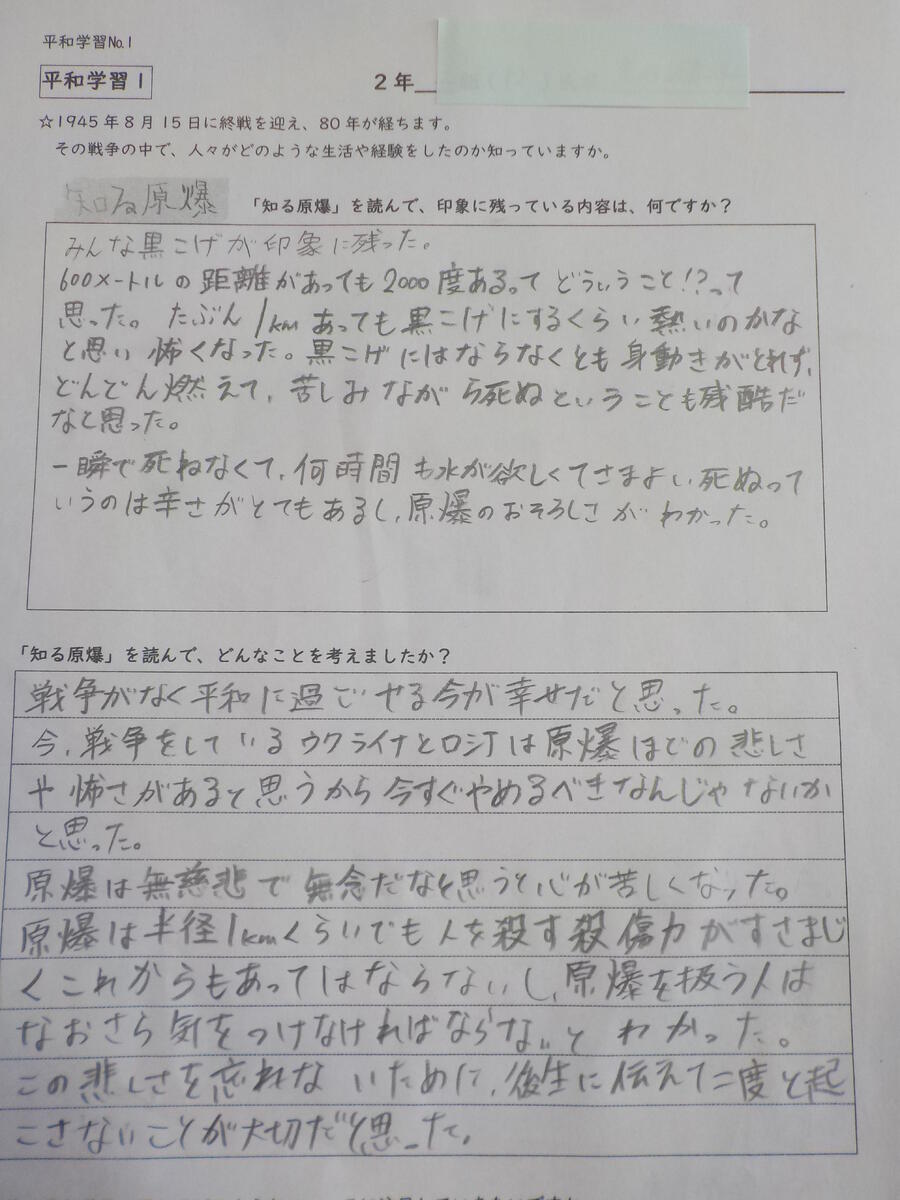 平和学習No.1
平和学習1
2年
☆1945年8月15日に終戦を迎え、80年が経ちます。
その戦争の中で、人々がどのような生活や経験をしたのか知っていますか。
知る原爆 「知る原爆」を読んで、印象に残っている内容は、何ですか?
みんな黒こげが印象に残った。
600メートルの距離があっても2000度あるって どういうこと!?って
思った。たぶん1kmあっても黒こげにするくらい熱いのかな
と思い怖くなった。黒こげにはならなくとも身動きがとれず、
どんどん燃えて、苦しみながら死ぬということも残酷だ
なと思った。
一瞬で死ねなくて、何時間も水が欲しくてさまよい死ぬって
いうのは辛さがとてもあるし、原爆のおそろしさがわかった。
「知る原爆」を読んで、どんなことを考えましたか?
戦争がなく平和に過ごせる今が幸せだと思った。
今、戦争をしているウクライナとロシアは原爆ほどの悲しさ
や怖さがあると思うから今すぐやめるべきなんじゃないか
と思った。
原爆は無慈悲で無念だなと思うと心が苦しくなった。
原爆は半径1kmくらいでも人を殺す殺傷力がすさまじ
くこれからもあってはならないし、原爆を扱う人は
なおさら気をつけなければならないとわかった。
この悲しさを忘れないために、後生に伝えて二度と起
こさないことが大切だと思った。